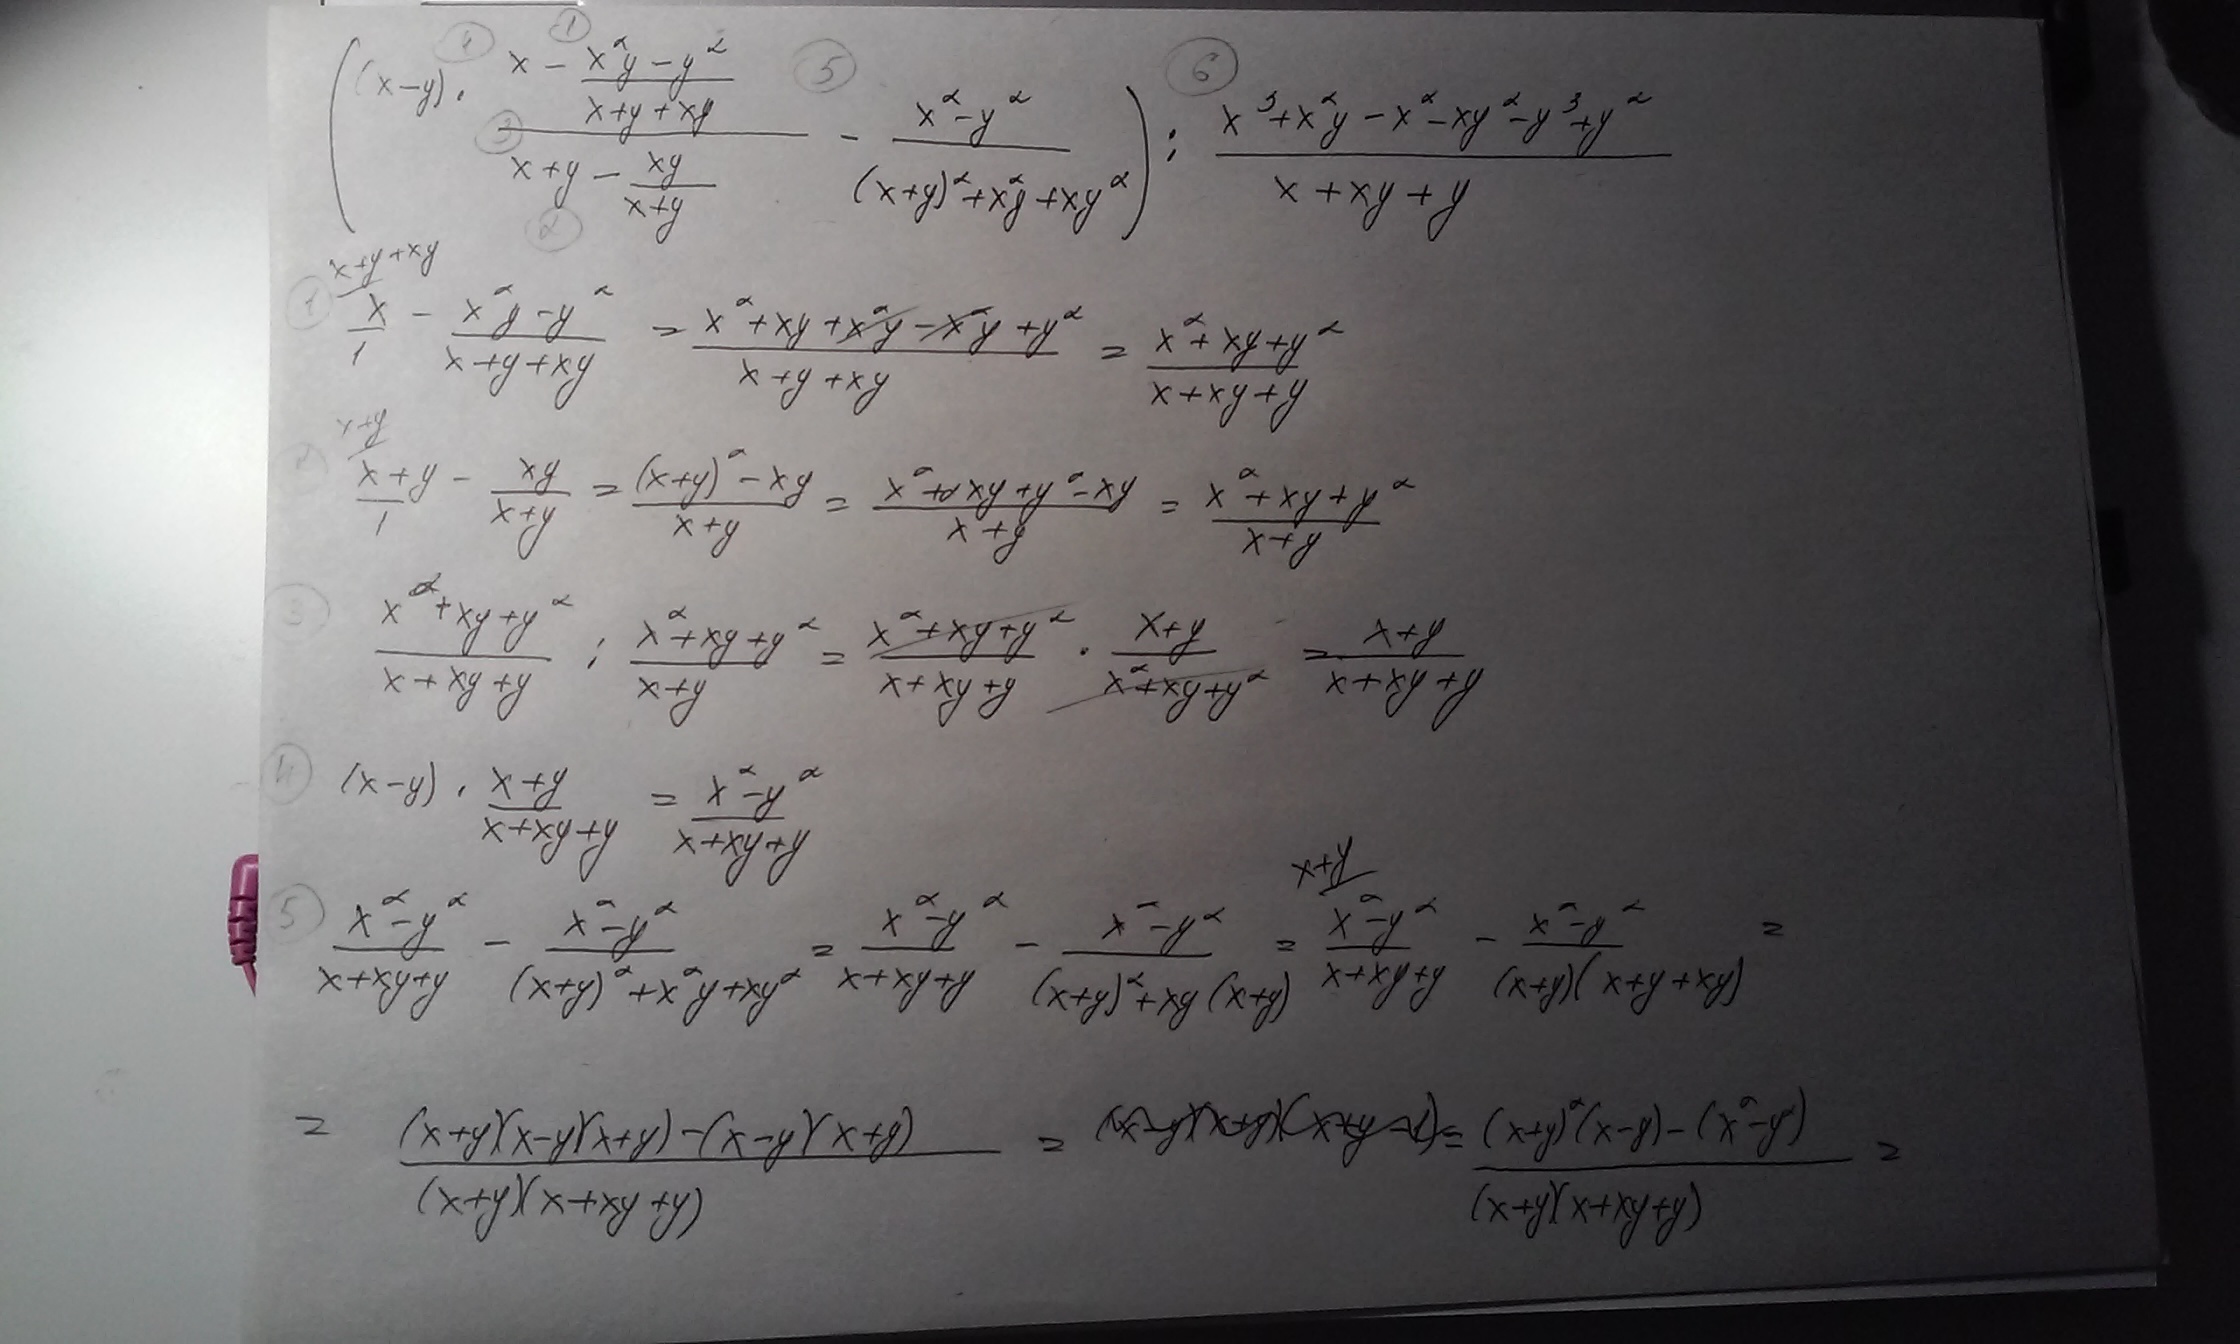 ④ ① ⑤ ⑥
( (x-y) · (x - (x²y-y²)/(x+y+xy)) / (x+y - xy/(x+y)) - (x²-y²)/((x+y)²+x²y+xy²) ) : (x³+x²y-x²-xy²-y³+y²)/(x+xy+y)
③ ②
x+y+xy
① x/1 - (x²y-y²)/(x+y+xy) = (x²+xy+x²y-x²y+y²)/(x+y+xy) = (x²+xy+y²)/(x+xy+y)
x+y
② (x+y)/1 - xy/(x+y) = ((x+y)²-xy)/(x+y) = (x²+2xy+y²-xy)/(x+y) = (x²+xy+y²)/(x+y)
③ (x²+xy+y²)/(x+xy+y) : (x²+xy+y²)/(x+y) = (x²+xy+y²)/(x+xy+y) · (x+y)/(x²+xy+y²) = (x+y)/(x+xy+y)
④ (x-y) · (x+y)/(x+xy+y) = (x²-y²)/(x+xy+y)
x+y
⑤ (x²-y²)/(x+xy+y) - (x²-y²)/((x+y)²+x²y+xy²) = (x²-y²)/(x+xy+y) - (x²-y²)/((x+y)²+xy(x+y)) = (x²-y²)/(x+xy+y) - (x²-y²)/((x+y)(x+y+xy)) =
= ((x+y)(x-y)(x+y)-(x-y)(x+y))/((x+y)(x+xy+y)) = (x-y)(x+y)(x+y-1) = ((x+y)²(x-y)-(x²-y²))/((x+y)(x+xy+y)) =